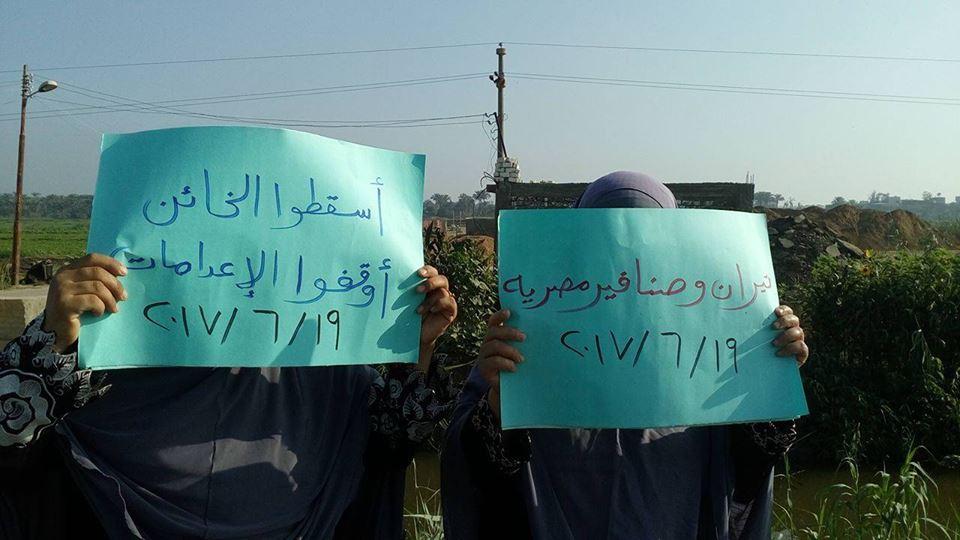 أسقطوا الخائن
أوقفوا الإعدامات
٢٠١٧/٦/١٩
تيران وصنافير مصريه
٢٠١٧/٦/١٩